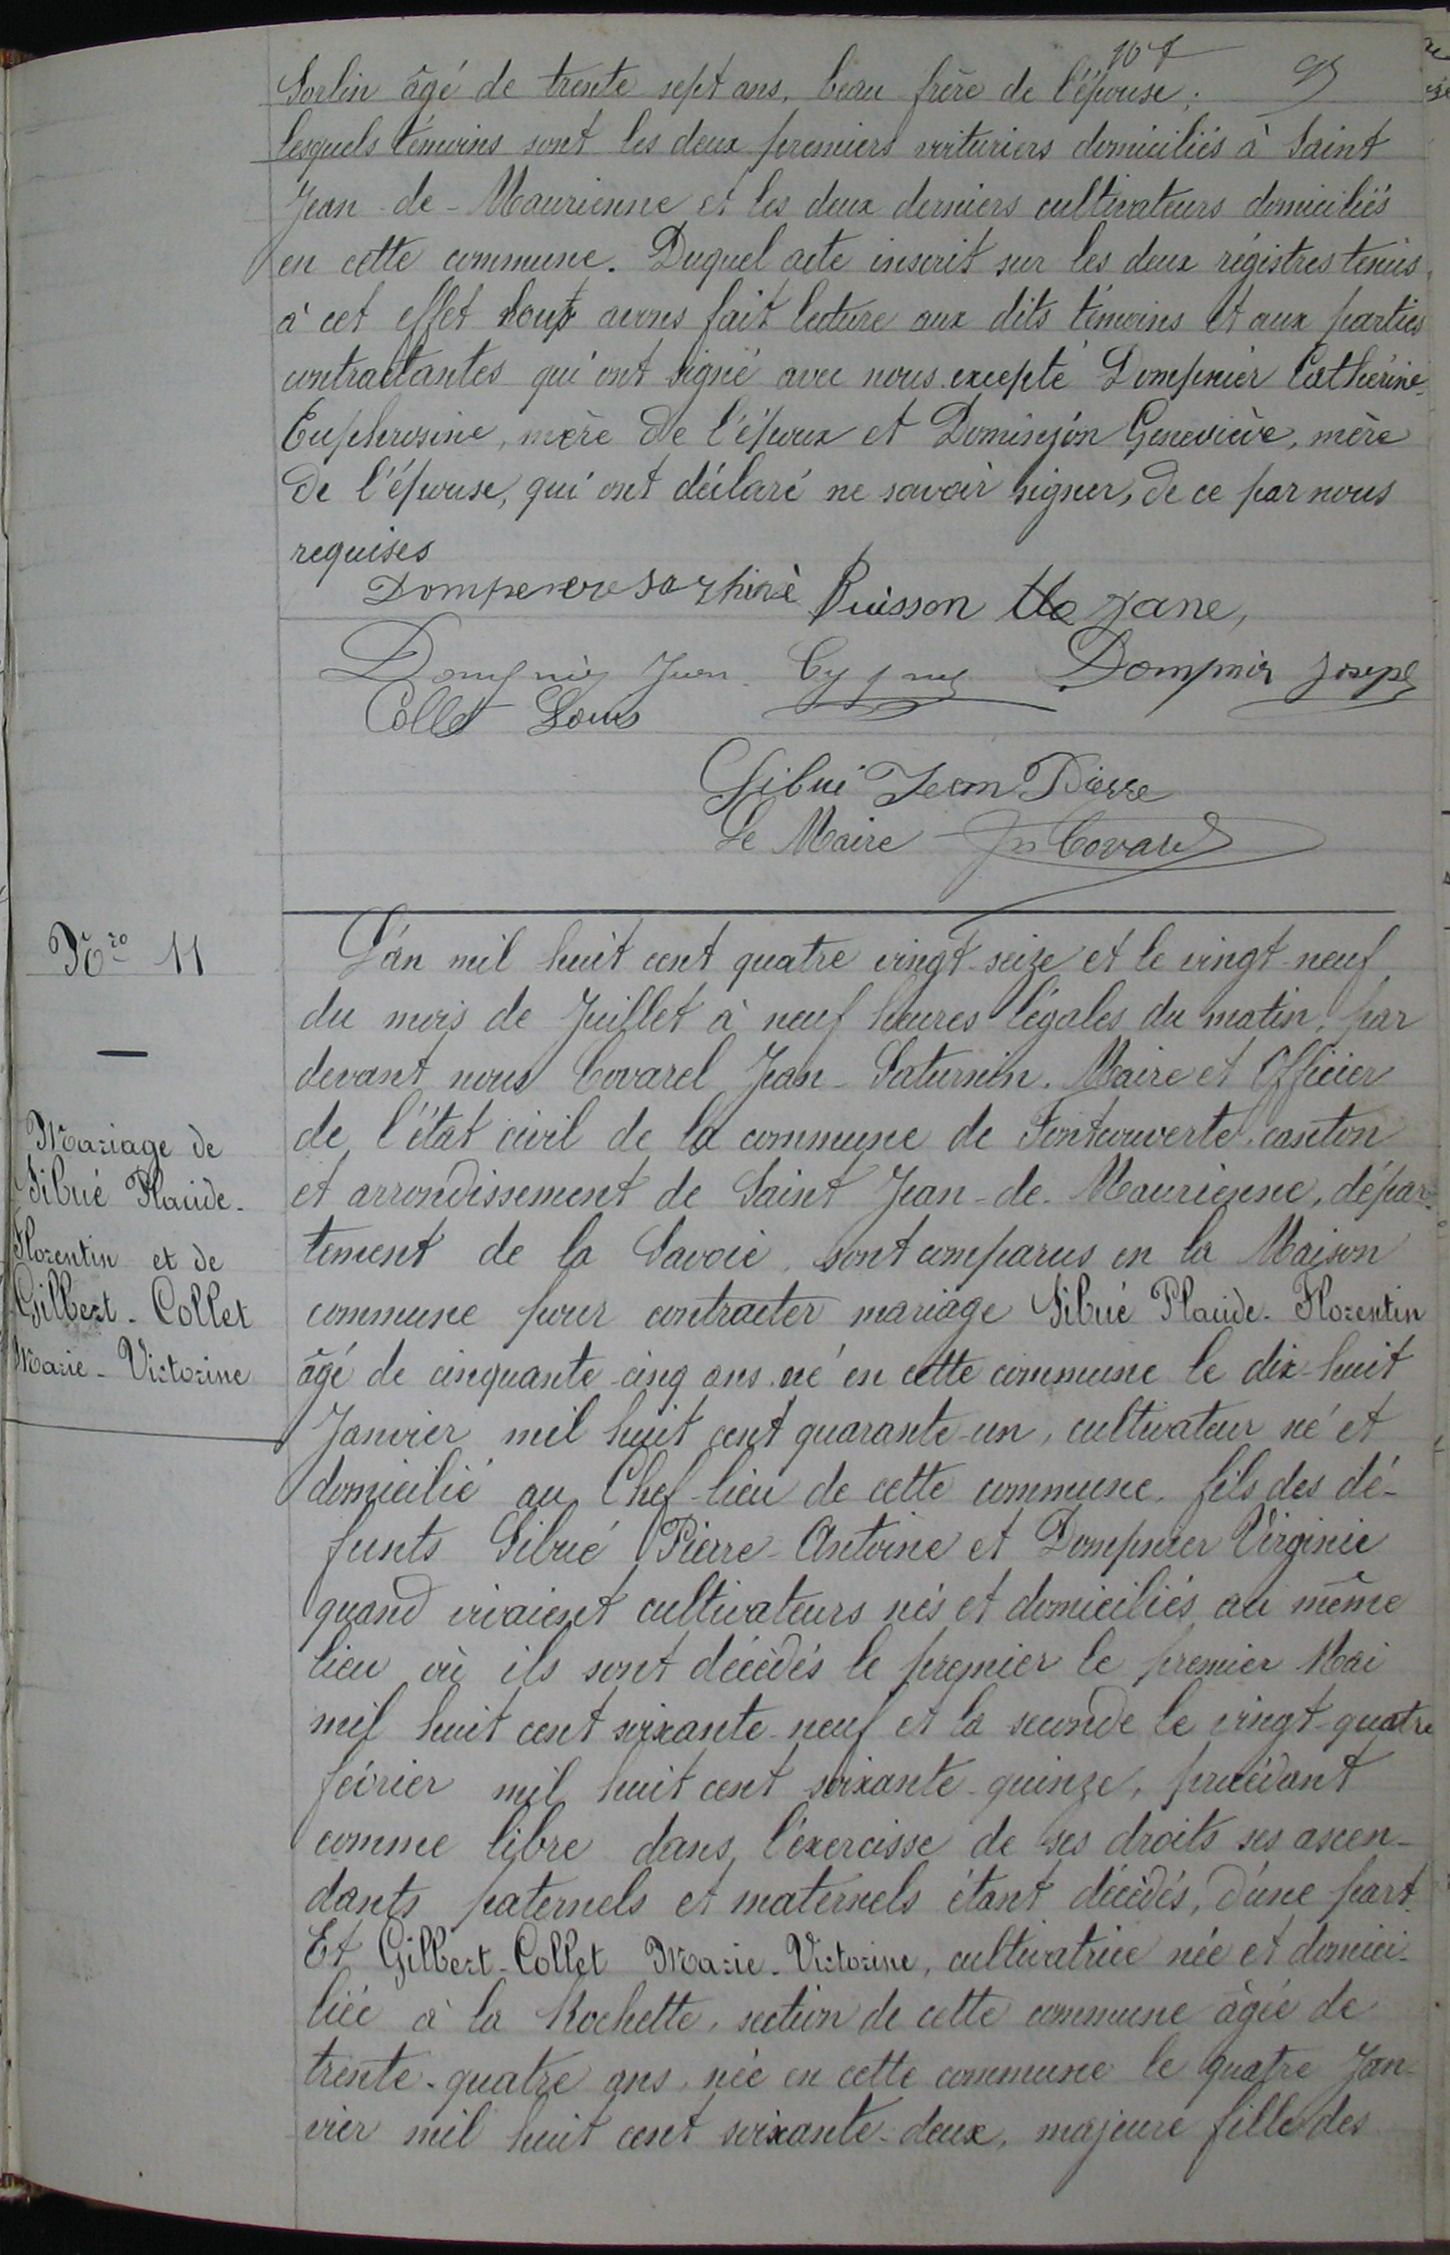 107
Sorlin âgé de trente sept ans, beau frère de l'épouse;
lesquels témoins sont les deux premiers voituriers domiciliés à Saint
Jean-de-Maurienne et les deux derniers cultivateurs domiciliés
en cette commune. Duquel acte inscrit sur les deux régistres tenus
à cet effet nous avons fait lecture aux dits témoins et aux parties
contractantes qui ont signé avec nous excepté Dompnier Cathérine
Euphrosine, mère de l'époux et Dominjon Geneviève, mère
de l'épouse, qui ont déclaré ne savoir signer, de ce par nous
requises
Buisson
Dompnier Jean Dompnier Joseph
Collet Louis
Sibué Jean Pierre
Le Maire Jn Covarel
Nro 11
Mariage de
Sibué Placide-
Florentin et de
Gilbert-Collet
Marie-Victorine
L'an mil huit cent quatre vingt-seize et le vingt-neuf
du mois de Juillet à neuf heures légales du matin, par
devant nous Covarel Jean-Saturnin, Maire et Officier
de l'état civil de la commune de Fontcouverte, canton
et arrondissement de Saint Jean-de-Maurienne, dépar-
tement de la Savoie, sont comparus en la Maison
commune pour contracter mariage Sibué Placide-Florentin
âgé de cinquante-cinq ans né en cette commune le dix-huit
Janvier mil huit cent quarante-un, cultivateur né et
domicilié au Chef-lieu de cette commune, fils des dé-
funts Sibué Pierre-Antoine et Dompnier Virginie
quand vivaient cultivateurs nés et domiciliés au même
lieu où ils sont décèdés le premier le premier Mai
mil huit cent soixante-neuf et la seconde le vingt-quatre
février mil huit cent soixante-quinze, procédant
comme libre dans l'éxercisse de ses droits ses ascen-
dants paternels et maternels étant décèdés, d'une part.
Et Gilbert-Collet Marie-Victorine, cultivatrice née et domici-
liée à la Rochette, section de cette commune âgée de
trente-quatre ans, née en cette commune le quatre Jan-
vier mil huit cent soixante-deux, majeure fille des